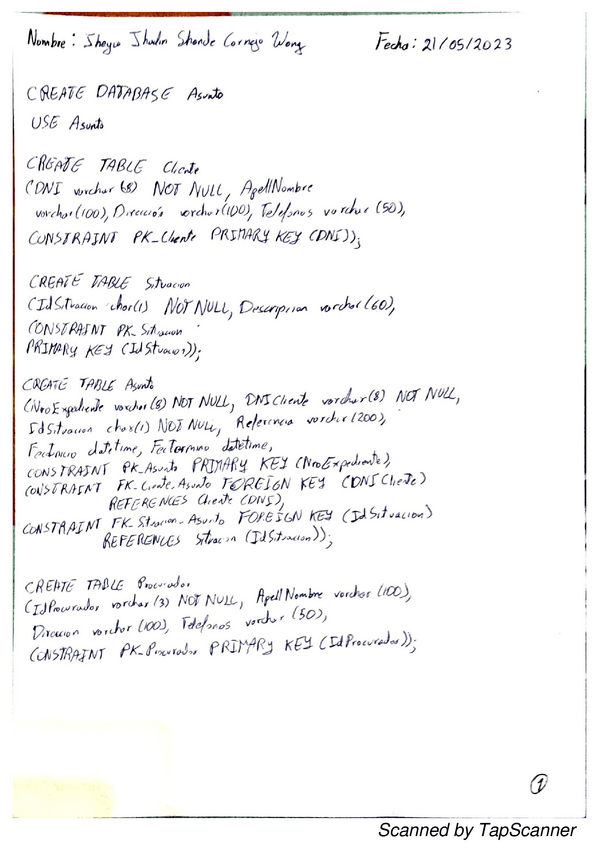 Nombre: Shayuri Jhudin Shande Cornejo Wong Fecha: 21/05/2023
CREATE DATABASE Asunto
USE Asunto
CREATE TABLE Cliente
(DNI varchar (8) NOT NULL, ApellNombre
varchar(100), Dirección varchar(100), Telefonos varchar (50),
CONSTRAINT PK_Cliente PRIMARY KEY (DNI));
CREATE TABLE Situacion
(IdSituacion char(1) NOT NULL, Descripcion varchar(60),
CONSTRAINT PK_Situacion
PRIMARY KEY (IdSituacion));
CREATE TABLE Asunto
(NroExpediente varchar(8) NOT NULL, DNICliente varchar(8) NOT NULL,
IdSituacion char(1) NOT NULL, Referencia varchar(200),
FecInicio datetime, FecTermino datetime,
CONSTRAINT PK_Asunto PRIMARY KEY (NroExpediente),
CONSTRAINT FK_Cliente_Asunto FOREIGN KEY (DNICliente)
REFERENCES Cliente (DNI),
CONSTRAINT FK_Situacion_Asunto FOREIGN KEY (IdSituacion)
REFERENCES Situacion (IdSituacion));
CREATE TABLE Procurador
(IdProcurador varchar(3) NOT NULL, ApellNombre varchar (100),
Direccion varchar (100), Telefonos varchar (50),
CONSTRAINT PK_Procurador PRIMARY KEY (IdProcurador));
1
Scanned by TapScanner